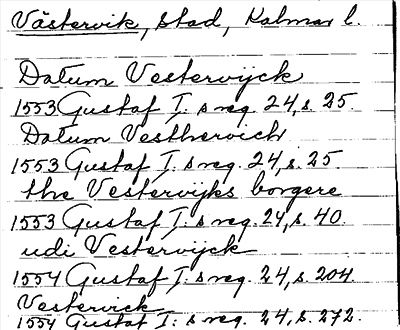 Västervik, stad, Kalmar l.
Datum Vesterwijck
1553 Gustaf I: s reg. 24, s. 25.
Datum Vestherwich
1553 Gustaf I: s reg. 24, s. 25
the Vesterwijks borgere
1553 Gustaf I: s reg. 24, s. 40.
udi Vesterwijck
1554 Gustaf I: s reg. 24, s. 204.
Vesterwick
1554 Gustaf I: s reg. 24, s. 272.